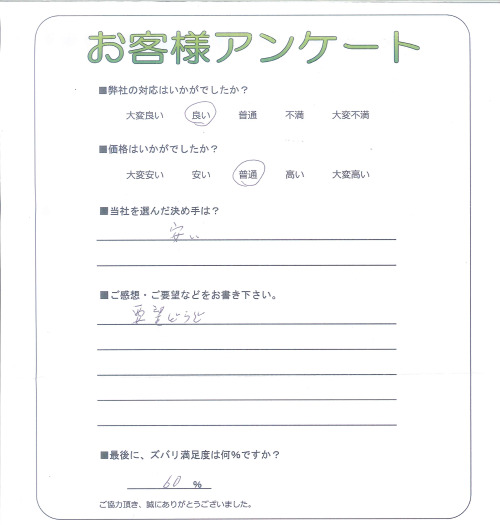 お客様アンケート
■弊社の対応はいかがでしたか？
大変良い 良い 普通 不満 大変不満
■価格はいかがでしたか？
大変安い 安い 普通 高い 大変高い
■当社を選んだ決め手は？
安い
■ご感想・ご要望などをお書き下さい。
要望どうり
■最後に、ズバリ満足度は何%ですか？
60 %
ご協力頂き、誠にありがとうございました。